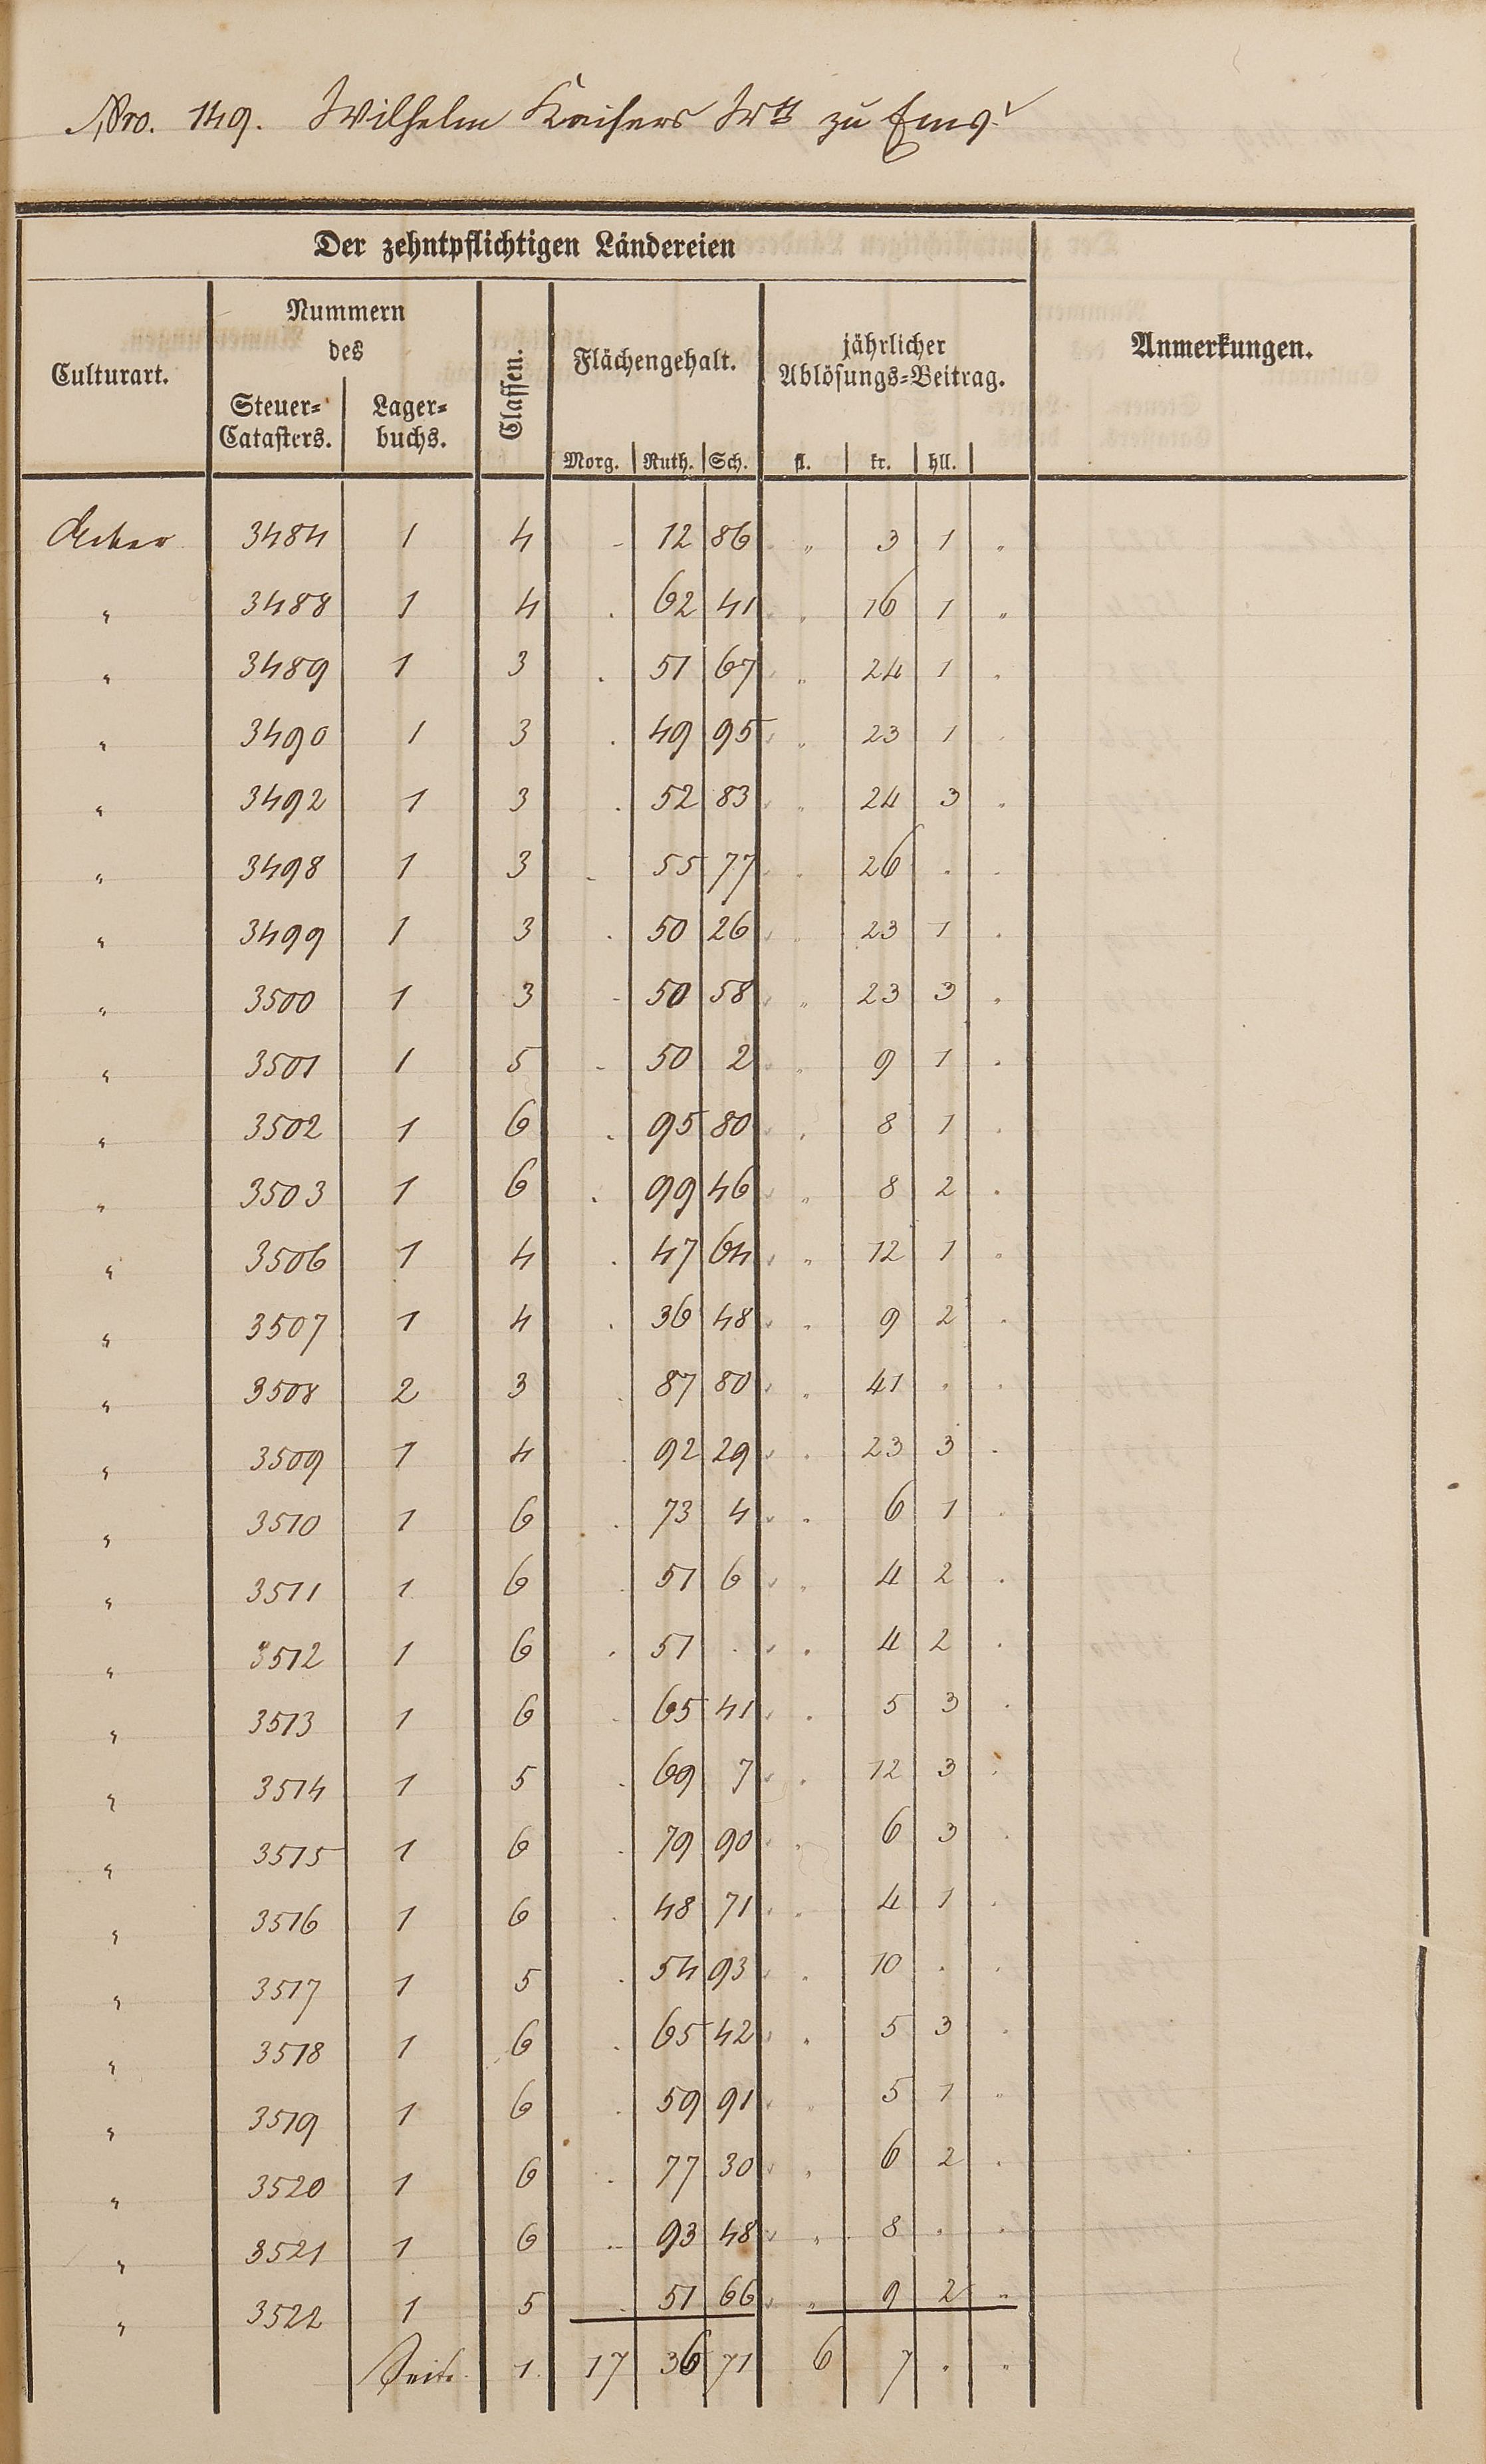 Nro. 149. Wilhelm Kaisers Wtt zu Ems
Der zehntpflichtigen Ländereien
Culturart. Nummern des Steuer=Catasters. Lager=buchs. Classen. Flächengehalt. jährlicher Ablösungs=Beitrag. Anmerkungen.
Morg. Ruth. Sch. fl. kr. hll.
Acker 3484 1 4 - 12 86 " 3 1 "
" 3488 1 4 . 62 41 " 16 1 "
" 3489 1 3 . 51 67 " 24 1 "
" 3490 1 3 . 49 95 " 23 1 "
" 3492 1 3 . 52 83 " 24 3 "
" 3498 1 3 . 55 77 " 26 . .
" 3499 1 3 . 50 26 " 23 1 .
" 3500 1 3 - 50 58 " 23 3 "
" 3501 1 5 - 50 2 " 9 1 "
" 3502 1 6 . 95 80 " 8 1 .
" 3503 1 6 . 99 46 " 8 2 .
" 3506 1 4 . 47 64 " 12 1 "
" 3507 1 4 . 36 48 " 9 2 .
" 3508 2 3 . 87 80 " 41 . .
" 3509 1 4 . 92 29 " 23 3 .
" 3510 1 6 . 73 4 " 6 1 .
" 3511 1 6 . 51 6 " 4 2 .
" 3512 1 6 . 51 . " 4 2 .
" 3513 1 6 . 65 41 " 5 3 .
" 3514 1 5 . 69 7 " 12 3 .
" 3515 1 6 . 79 90 " 6 3 .
" 3516 1 6 . 48 71 " 4 1 .
" 3517 1 5 . 54 93 " 10 . .
" 3518 1 6 . 65 42 " 5 3 .
" 3519 1 6 . 59 91 " 5 1 "
" 3520 1 6 . 77 30 " 6 2 .
" 3521 1 6 . 93 48 " 8 . .
" 3522 1 5 . 51 66 " 9 2 "
Seite 1. 17 36 71 6 7 . "